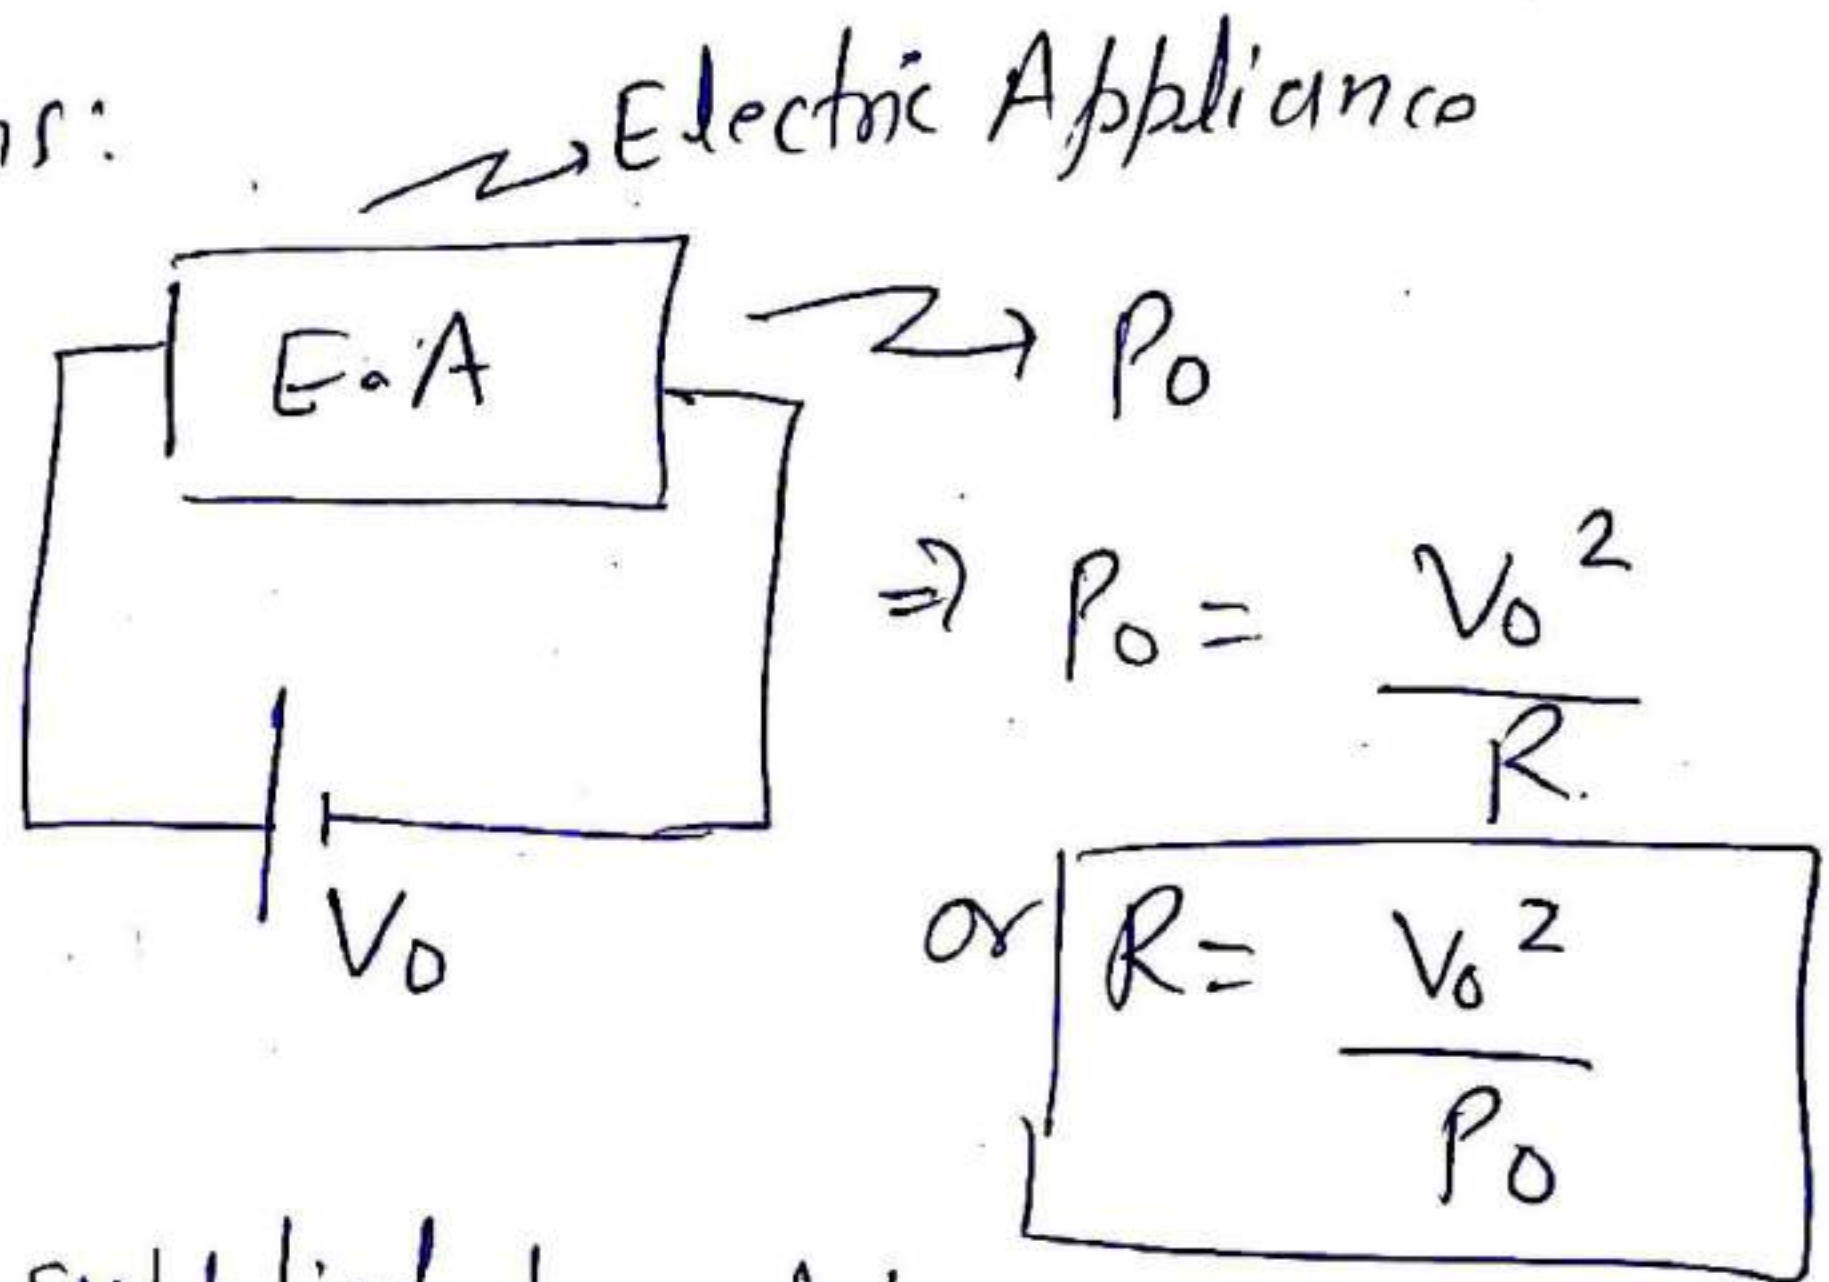 ns:
Electric Appliance
E.A
P0
⇒ P0 = V0² / R.
V0
or R = V0² / P0